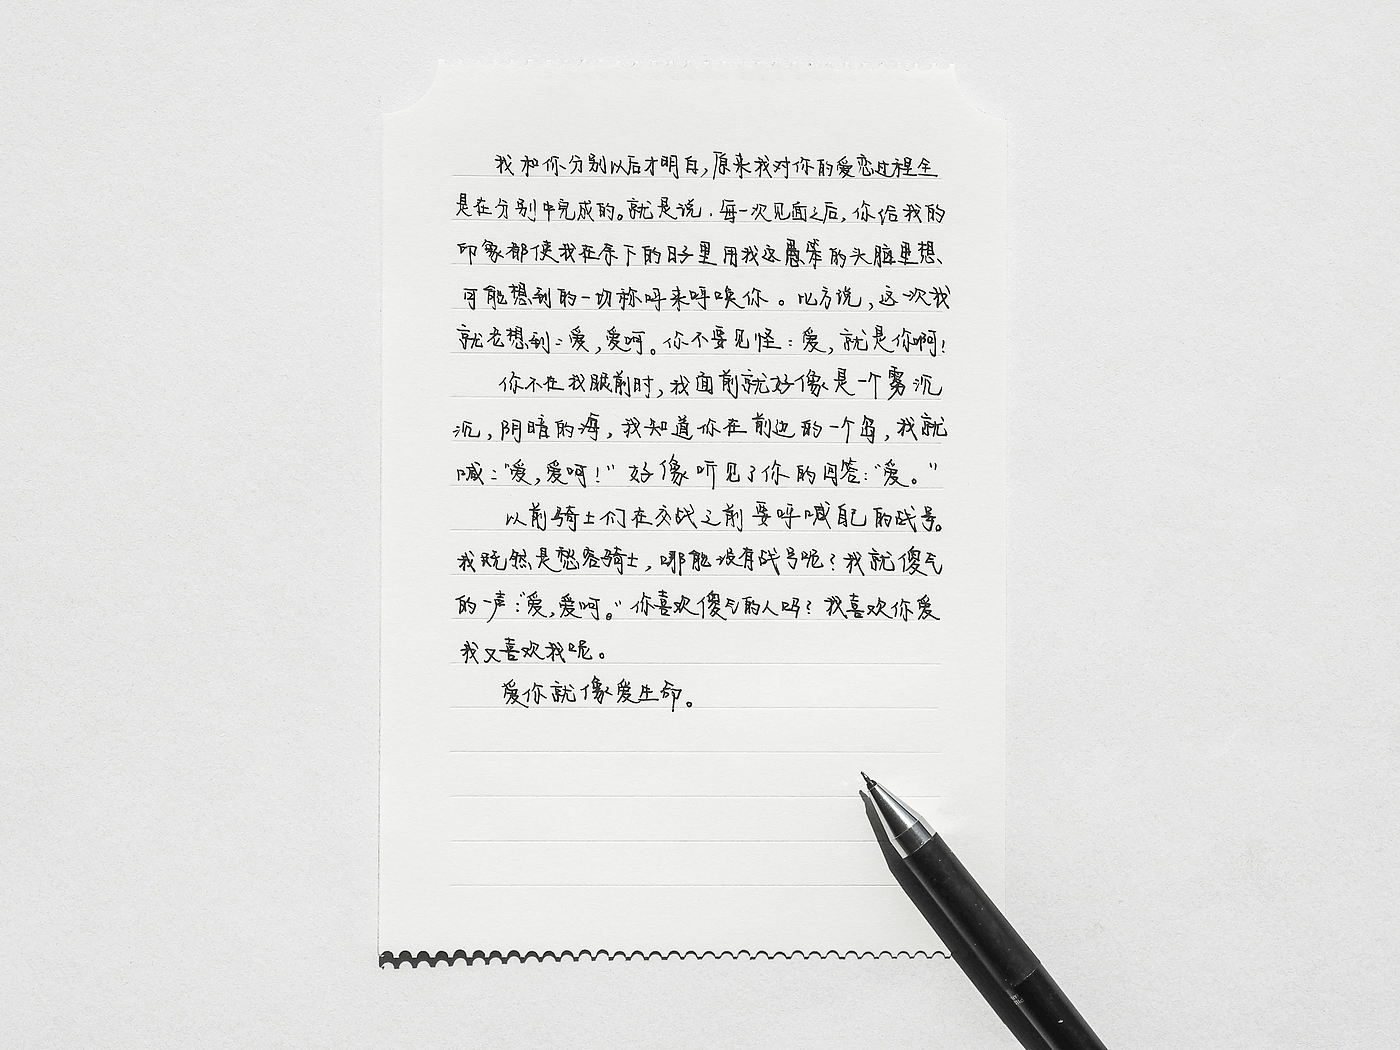 我和你分别以后才明白，原来我对你的爱恋过程全
是在分别中完成的。就是说，每一次见面之后，你给我的
印象都使我在余下的日子里用我这愚笨的头脑里想、
可能想到的一切称呼来呼唤你。比方说，这一次我
就老想到：爱，爱呵。你不要见怪：爱，就是你啊！
你不在我眼前时，我面前就好像是一个雾沉
沉，阴暗的海，我知道你在前边的一个岛，我就
喊：“爱，爱呵！”好像听见了你的回答：“爱。”
以前骑士们在交战之前要呼喊自己的战号。
我既然是愁容骑士，哪能没有战号呢？我就傻气
的一声：“爱，爱呵。”你喜欢傻气的人吗？我喜欢你爱
我又喜欢我呢。
爱你就像爱生命。